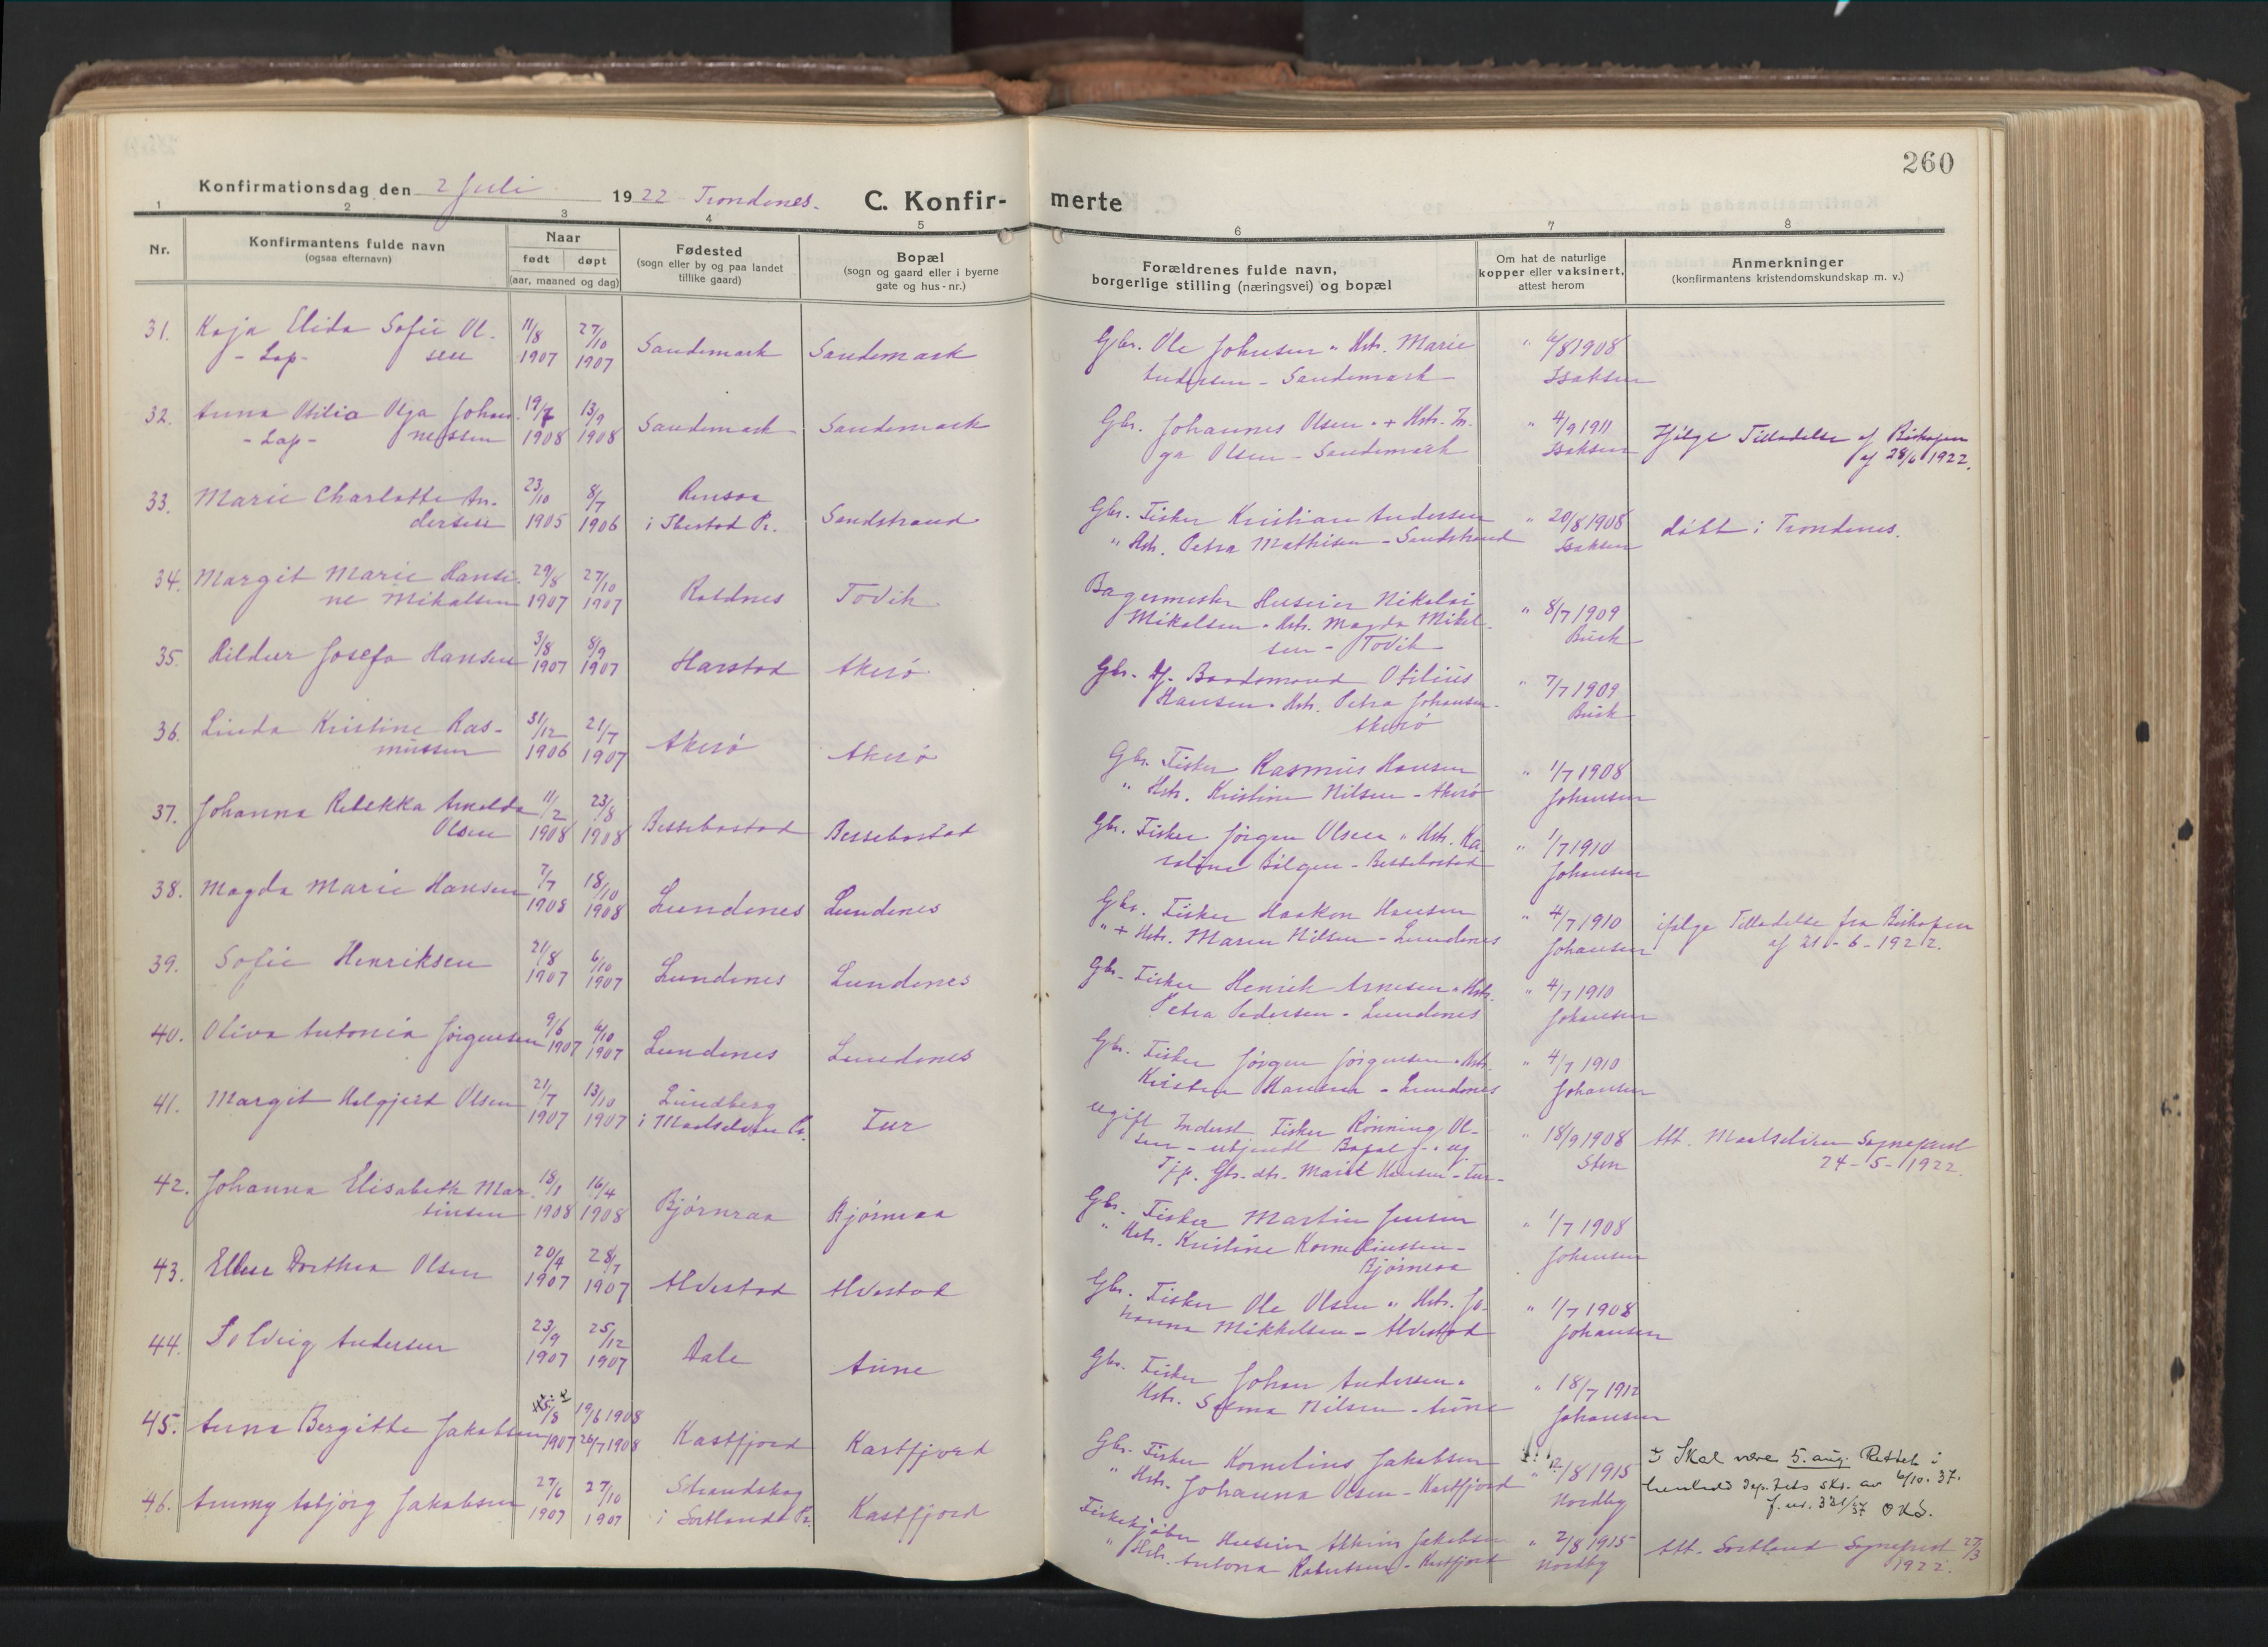 260
Konfirmationsdag den 2 Juli 1922 Trondenes. C. Konfir- merte
1 2 3 4 5 6 7 8
Nr.
Konfirmantens fulde navn
(ogsaa efternavn)
Naar
født døpt
(aar, maaned og dag)
Fødested
(sogn eller by og paa landet
tillike gaard)
Bopæl
(sogn og gaard eller i byerne
gate og hus-nr.)
Forældrenes fulde navn,
borgerlige stilling (næringsvei) og bopæl
Om hat de naturlige
kopper eller vaksinert,
attest herom
Anmerkninger
(konfirmantens kristendomskundskap m. v.)
31. Kaja Elida Sofie Ol- 11/8 27/10 Sandemark Sandemark Gbr. Ole Johnsen " Hstr. Marie " 6/8 1908
- Lap- sen 1907 1907 Andersen - Sandemark Isaksen
32. Anna Otilia Olga Johan- 19/7 13/9 Sandemark Sandemark Gbr. Johannes Olsen " + Hstr. In- " 4/9 1911 Ifølge Tilladelse af Biskopen
- Lap- nessen 1908 1908 ga Olsen - Sandemark Isaksen af 28/6 1922.
33. Marie Charlotte An- 23/10 8/7 Rensaa Sandstrand Gbr. Fisker Kristian Andersen " 20/8 1908 døbt i Trondenes.
dersen 1905 1906 i Ibestad Pr. " Hstr. Petra Mathisen - Sandstrand Isaksen
34. Margit Marie Hansi- 29/8 27/10 Roldnes Tovik Bagermester Huseier Nikolai " 8/7 1909
ne Mikalsen 1907 1907 Mikalsen " Hstr. Magda Mikal- Buck
sen - Tovik
35. Hildur Josefa Hansen 3/8 8/9 Harstad Akerø Gbr. Baadsmand Otilius " 7/7 1909
1907 1907 Hansen " Hstr. Petra Johansen - Buck
Akerø
36. Linda Kristine Ras- 31/12 21/7 Akerø Akerø Gbr. Fisker Rasmus Hansen " 1/7 1908
mussen 1906 1907 " Hstr. Kristine Nilsen - Akerø Johansen
37. Johanna Rebekka Arnolda 11/2 23/8 Bessebostad Bessebostad Gbr. Fisker Jørgen Olsen " Hstr. Ka- " 1/7 1910
Olsen 1908 1908 - Bessebostad Johansen
38. Magda Marie Hansen 7/7 18/10 Lundenes Lundenes Gbr. Fisker Haakon Hansen " 4/7 1910 ifølge Tilladelse fra Biskopen
1908 1908 " + Hstr. Maren Nilsen - Lundenes Johansen af 21-6-1922.
39. Sofie Henriksen 21/8 6/10 Lundenes Lundenes Gbr. Fisker Henrik Arnesen " Hstr. " 4/7 1910
1907 1907 Petra Pedersen - Lundenes Johansen
40. Oliva Antonia Jørgensen 9/6 6/10 Lundenes Lundenes Gbr. Fisker Jørgen Jørgensen " Hstr. " 4/7 1910
1907 1907 Hansen - Lundenes Johansen
41. Margit Helgjerd Olsen 21/7 13/10 Lundberg Fur ugift Inderst Fisker Rønning Ol- " 18/9 1908 Att. Maalselven Sogneprest
1907 1907 i Maalselven Pr. sen - ukjendt Bopæl Sten 24-5-1922.
Gbr. dtr. Marit Hansen - Fur -
42. Johanna Elisabeth Mar- 18/1 16/4 Bjørnraa Bjørnraa Gbr. Fisker Martin Jensen " 1/7 1908
tinsen 1908 1908 " Hstr. Kristine Korneliussen - Johansen
Bjørnraa
43. Ellen Dorthea Olsen 20/4 28/7 Alvestad Alvestad Gbr. Fisker Ole Olsen " Hstr. Jo- " 1/7 1908
1907 1907 hanna Mikkelsen - Alvestad Johansen
44. Solveig Andersen 23/9 25/12 Dale Aune Gbr. Fisker Johan Andersen " " 18/7 1912
1907 1907 Hstr. Selma Nilsen - Aune Johansen
45. Anna Bergitte Jakobsen 5/8 19/6 1908 Kastfjord Kastfjord Gbr. Fisker Kornelius Jakobsen " 12/8 1915 Skal være 5. aug. Rettet i
1907 26/7 1908 " Hstr. Johanna Olsen - Kastfjord Nordby henhold Dep.tets skr. av 6/10.37.
j. nr. 331/37 OKS.
46. Ammy Asbjørg Jakobsen 27/6 27/10 Strandskog Kastfjord Fiskekjøber Husein Jakobsen " 2/8 1915 Att. Sortland Sogneprest 27/3
1907 1907 i Sortlands Pr. " Hstr. Antona Robertsen - Kastfjord Nordby 1922.